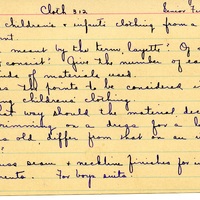 Cloth 312 Senior
children's + infants clothing from a
meant by the term, layette? Of
consist? Give the number of ea
kinds of materials used.
the points to be considered
children's clothing
what way should the material des
trimming on a dress for a
old differ from that on an
seam + neckline finishes for in
ments. For boys suits.